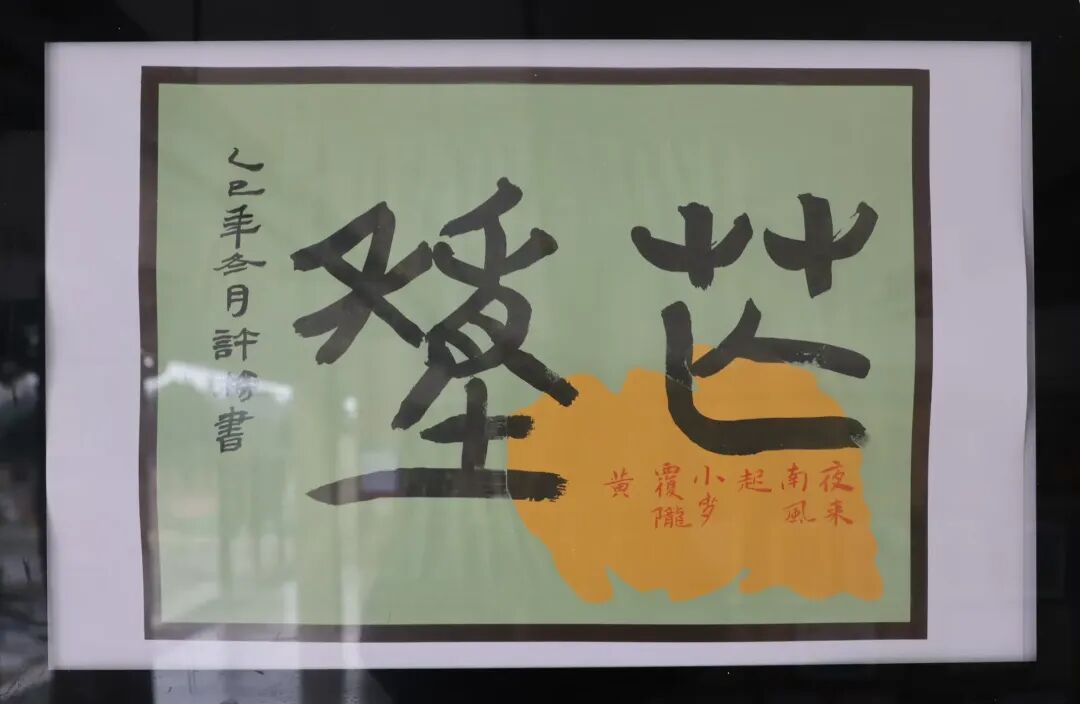 芒種
夜来
南風
起
小麥
覆隴
黄
乙巳年冬月許書